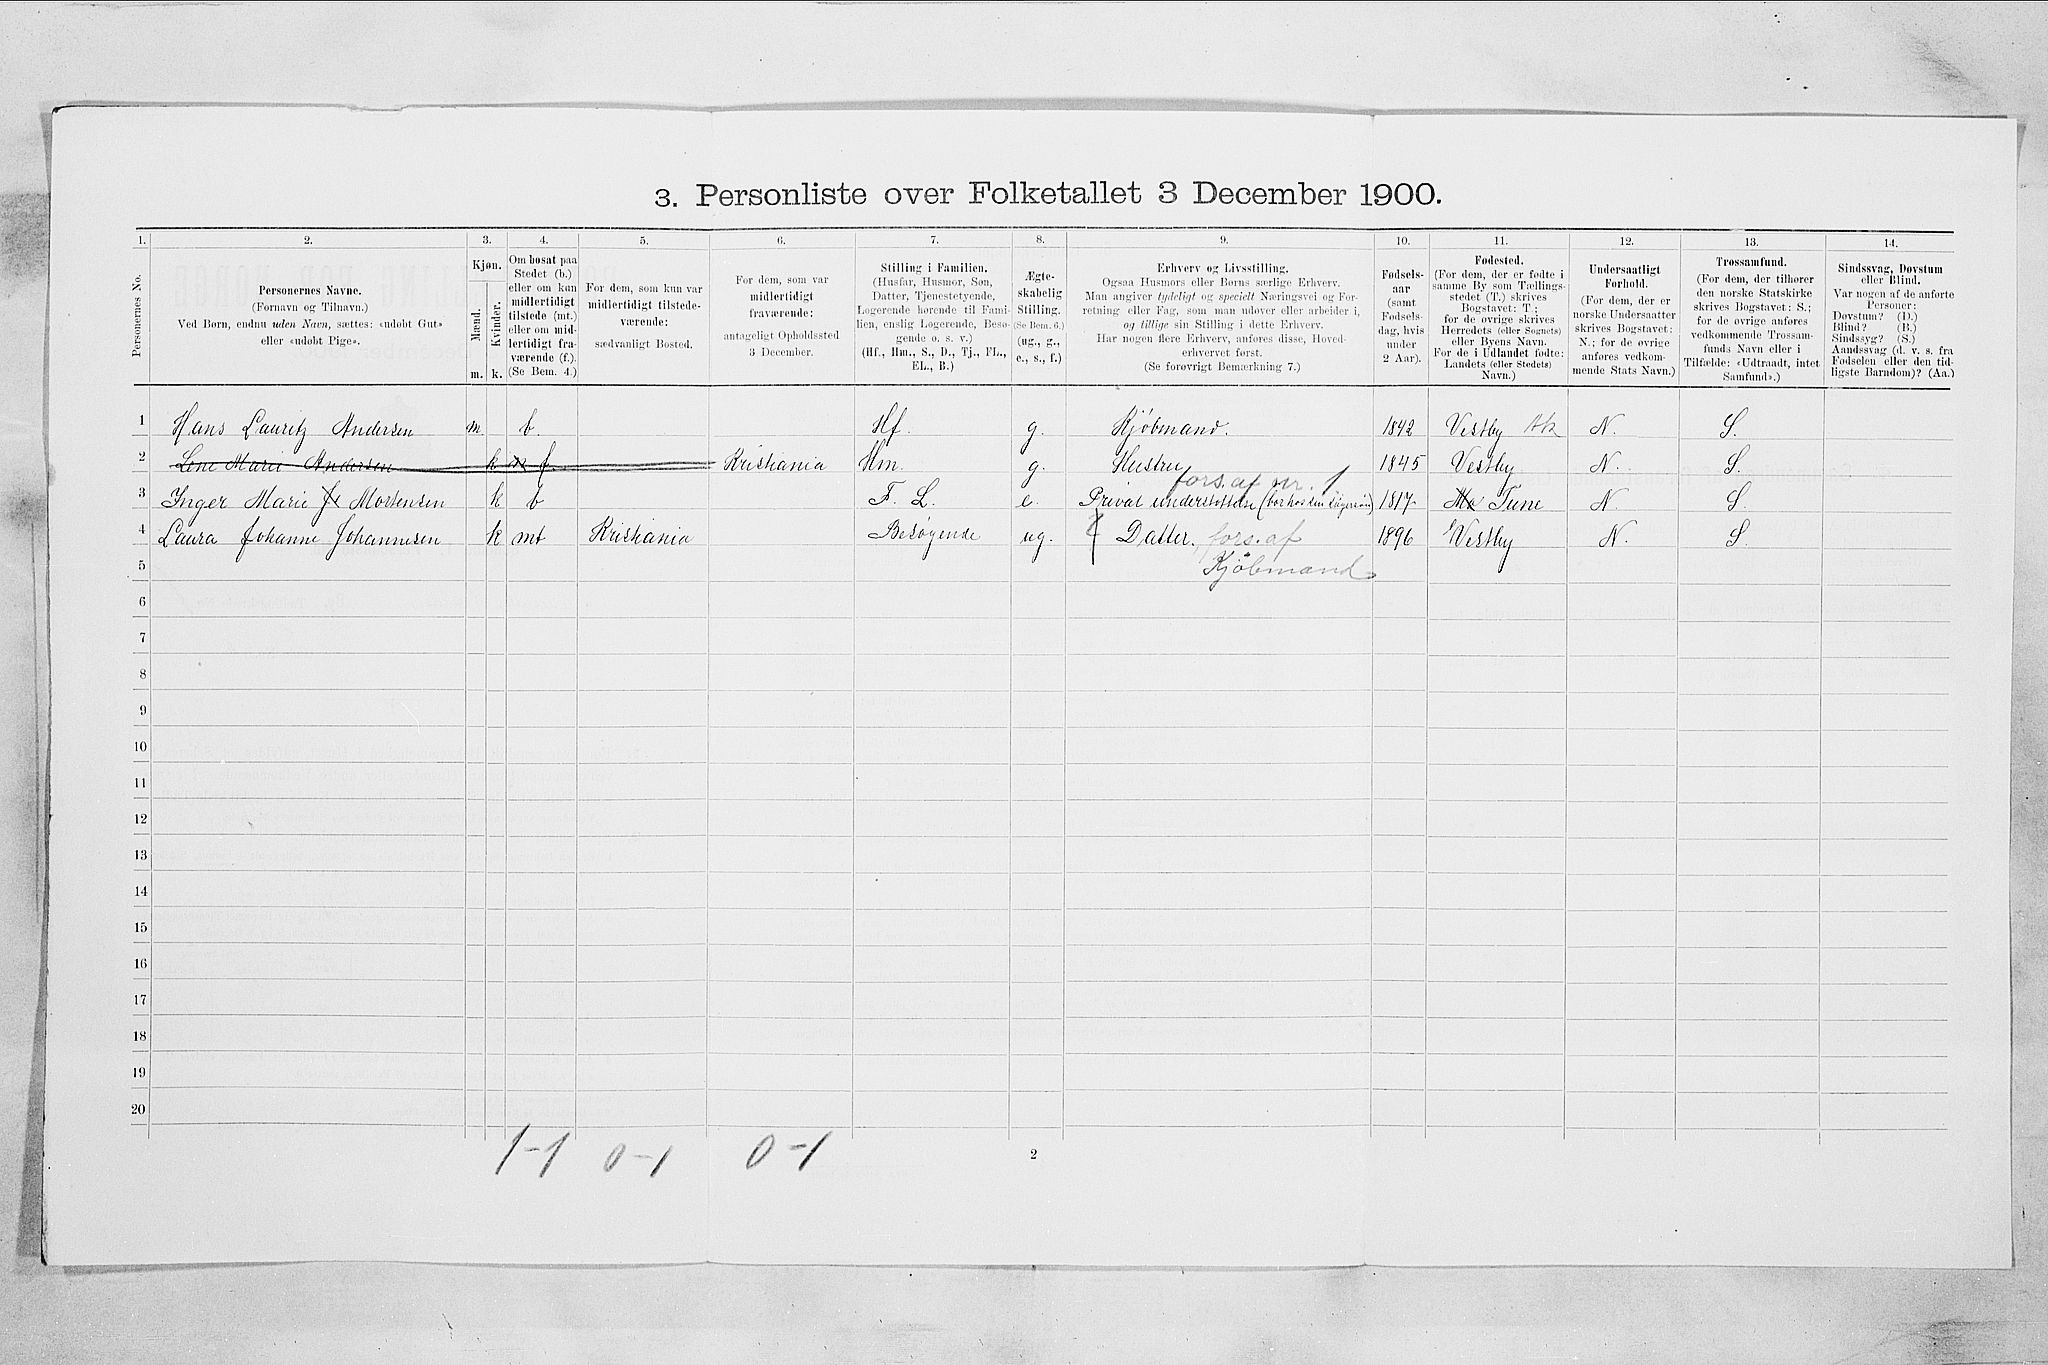 3. Personliste over Folketallet 3 December 1900.
1. 2. 3. 4. 5. 6. 7. 8. 9. 10. 11. 12. 13. 14.
Personernes No.
Personernes Navne.
(Fornavn og Tilnavn.)
Ved Børn, endnu uden Navn, sættes: «udøbt Gut»
eller «udøbt Pige».
Kjøn.
Mænd.
Kvinder.
m. k.
Om bosat paa
Stedet (b.)
eller om kun
midlertidigt
tilstede (mt.)
eller om mid-
lertidigt fra-
værende (f.).
(Se Bem. 4.)
For dem, som kun var
midlertidigt tilstede-
værende:
sædvanligt Bosted.
For dem, som var
midlertidigt
fraværende:
antageligt Opholdssted
3 December.
Stilling i Familien.
(Husfar, Husmor, Søn,
Datter, Tjenestetyende,
Logerende hørende til Fami-
lien, enslig Logerende, Besø-
gende o. s. v.)
(Hf., Hm., S., D., Tj., FL.,
EL., B.)
Ægte-
skabelig
Stilling.
(Se Bem. 6.)
(ug., g.,
e., s., f.)
Erhverv og Livsstilling.
Ogsaa Husmors eller Børns særlige Erhverv.
Man angiver tydeligt og specielt Næringsvei og For-
retning eller Fag, som man udøver eller arbeider i,
og tillige sin Stilling i dette Erhverv.
Har nogen flere Erhverv, anføres disse, Hoved-
erhvervet først.
(Se forøvrigt Bemærkning 7.)
Fødsels-
aar
(samt
Fødsels-
dag, hvis
under
2 Aar).
Fødested.
(For dem, der er fødte i
samme By som Tællings-
stedet (T.) skrives
Bogstavet: T.;
for de øvrige skrives
Herredets (eller Sognets)
eller Byens Navn.
For de i Udlandet fødte:
Landets (eller Stedets)
Navn.)
Undersaatligt
Forhold.
(For dem, der er
norske Undersaatter
skrives Bogstavet:
N.; for de øvrige
anføres vedkom-
mende Stats Navn.)
Trossamfund.
(For dem, der tilhører
den norske Statskirke
skrives Bogstavet: S.;
for de øvrige anføres
vedkommende Trossam-
funds Navn eller i
Tilfælde: «Udtraadt, intet
Samfund».)
Sindssvag, Døvstum
eller Blind.
Var nogen af de anførte
Personer:
Døvstum? (D.)
Blind? (B.)
Sindssyg? (S.)
Aandssvag (d. v. s. fra
Fødselen eller den tid-
ligste Barndom)? (Aa.)
1 Hans Lauritz Andersen m. b. Hf. g. Kjøbmand. 1842 Vestby Ak N. S.
2 Lene Marie Andersen k f Kristiania Hm. g. Hustru 1845 Vestby N. S.
fors. af nr. 1
3 Inger Marie Mortensen k b F. L. e. Privat understøttelse 1817 Tune N. S.
4 Laura Johanne Johannesen k mt Kristiania Besøgende ug. Datter. fors. af 1896 Vestby N. S.
Kjøbmand
5
6
7
8
9
10
11
12
13
14
15
16
17
18
19
20
1-1 0-1 0-1
2